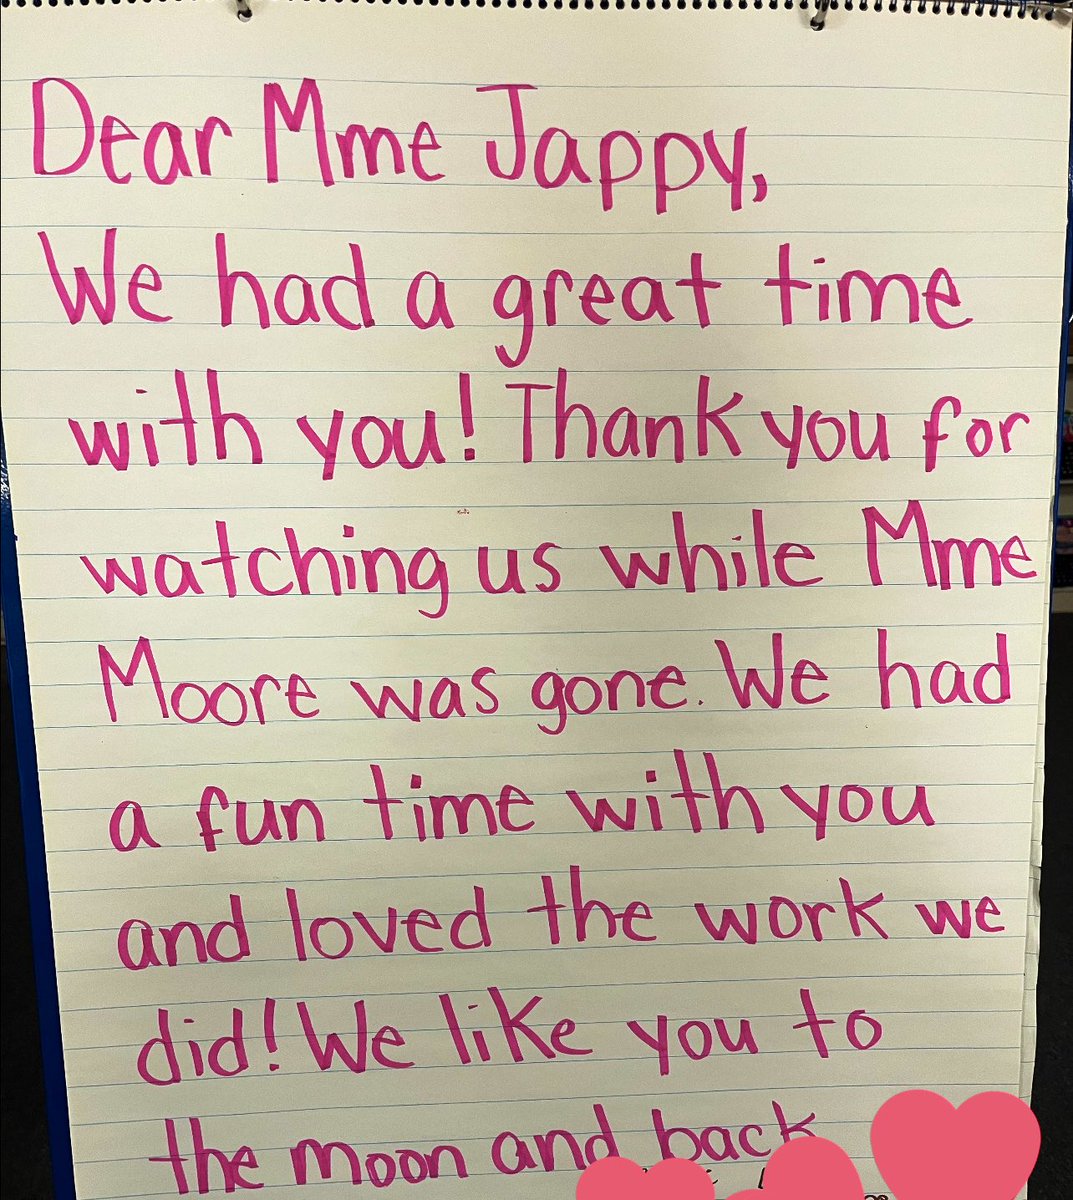 Dear Mme Jappy,
We had a great time
with you! Thank you for
watching us while Mme
Moore was gone. We had
a fun time with you
and loved the work we
did! We like you to
the moon and back